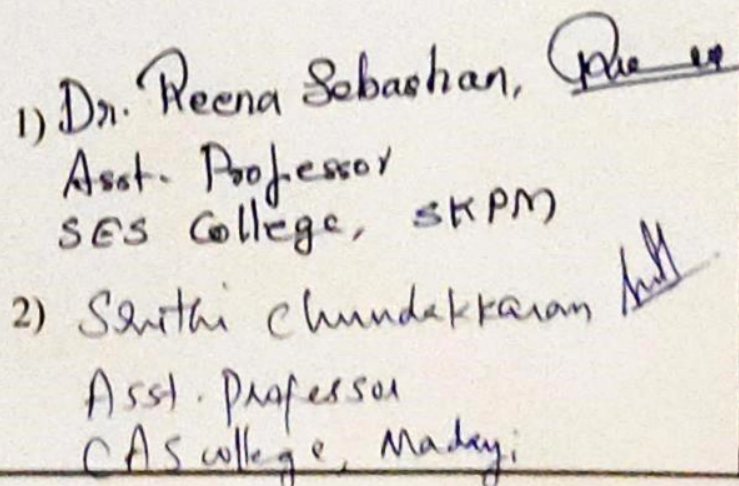 1) Dr. Reena Sebastian,
Asst. Professor
SES College, SKPM
2) Smithi Chundakkaran
Asst. Professor
CAS college, Madayi